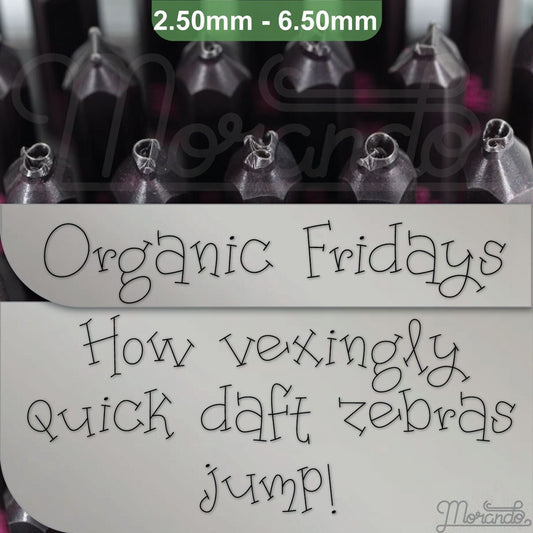 2.50mm - 6.50mm
Morando
Organic Fridays
How vexingly
quick daft zebras
jump!
Morando